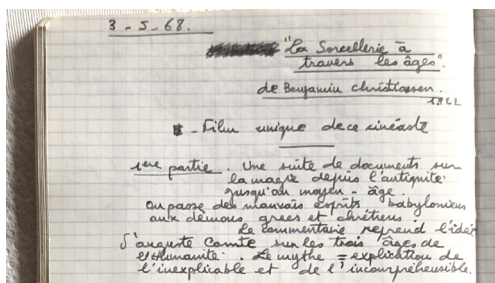 3-5-68.
"La Sorcellerie à
travers les âges".
de Benjamin Christiansen.
1922
- Film unique de ce cinéaste
1ère partie. Une suite de documents sur
la magie depuis l'antiquité
jusqu'au moyen-âge.
On passe des mauvais esprits babyloniens
aux démons grecs et chrétiens.
Le commentaire reprend l'idée
d'Auguste Comte sur les trois âges de
l'Humanité. Le mythe = explication de
l'inexplicable et de l'incompréhensible.